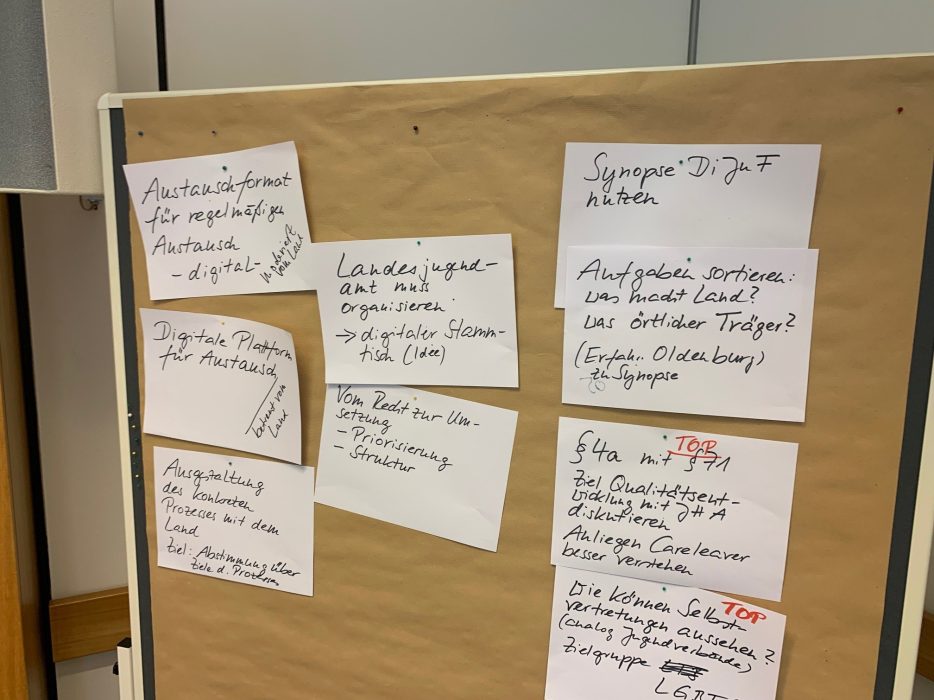 Austauschformat
für regelmäßigen
Austausch
- digital -
moderiert
vom Land
Digitale Plattform
für Austausch
betreut von
Land
Ausgestaltung
des konkreten
Prozesses mit dem
Land
Ziel: Abstimmung über
Ziele d. Prozesses
Landesjugend-
amt muss
organisieren
→ digitaler Stamm-
tisch (Idee)
Vom Recht zur Um-
setzung
- Priorisierung
- Struktur
Synopse DiJuF
nutzen
Aufgaben sortieren:
was macht Land?
was örtlicher Träger?
(Erfahr. Oldenburg)
zu Synopse
TOP
§ 4a mit § 71
Ziel Qualitätsent-
wicklung mit JHA
diskutieren
Anliegen Careleaver
besser verstehen
TOP
Wie können Selbst-
vertretungen aussehen?
(analog Jugendverbände)
Zielgruppe